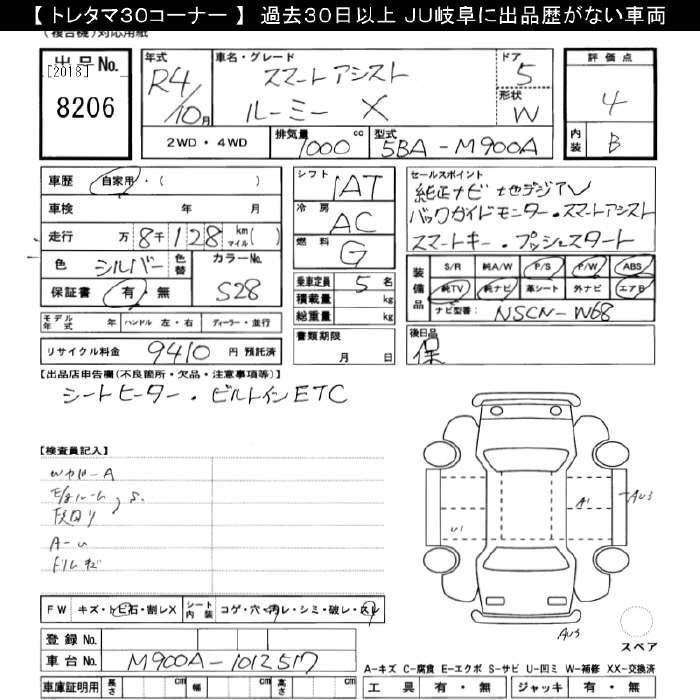 【 トレタマ30コーナー 】 過去30日以上 JU岐阜に出品歴がない車両
(複合機)対応用紙
出品No.
[2018]
8206
年式
R4/10月
車名・グレード
スマートアシスト
ルーミー X
ドア
5
形状
W
評価点
4
内装
B
2WD・4WD
排気量
1000 cc
型式
5BA-M900A
車歴
自家用・( )
車検 年 月
走行 万 8千128 km マイル( )
色
シルバー
色替
カラーNo.
S28
保証書
有・無
シフト
IAT
冷房
AC
燃料
G
乗車定員 5 名
積載量 kg
総重量 kg
書類期限
月 日
セールスポイント
純正ナビ 地デジTV
バックガイドモニター・スマートアシスト
スマートキー・プッシュスタート
装備品
S/R 純A/W P/S P/W ABS
純TV 純ナビ 革シート 外ナビ エアB
ナビ型番: NSCN-W68
モデル年式 年 ハンドル 左・右 ディーラー・並行
リサイクル料金 9410 円 預託済
後日品
保
【出品店申告欄(不良箇所・欠品・注意事項等)】
シートヒーター・ビルトインETC
【検査員記入】
A-U
U1
A1
AU3
AU3
FW キズ・トビ石・割レX シート内装 コゲ・穴・汚レ・シミ・破レ・スレ
登録No.
車台No. M900A-1012517
車庫証明用 長さ cm 幅 cm 高さ cm
スペア
A-キズ C-腐食 E-エクボ S-サビ U-凹ミ W-補修 XX-交換済
工具 有・無 ジャッキ 有・無